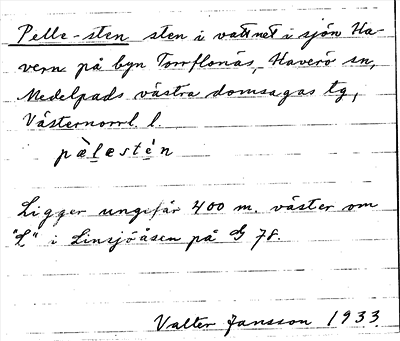 Pelle-sten sten i vattnet i sjön Ha-
vern på byn Torrflonäs, Haverö sn,
Medelpads västra domsagas tg,
Västernorrl. l.
pàlestén
Ligger ungefär 400 m. väster om
"L" i Linsjöåsen på G 78.
Valter Jansson 1933